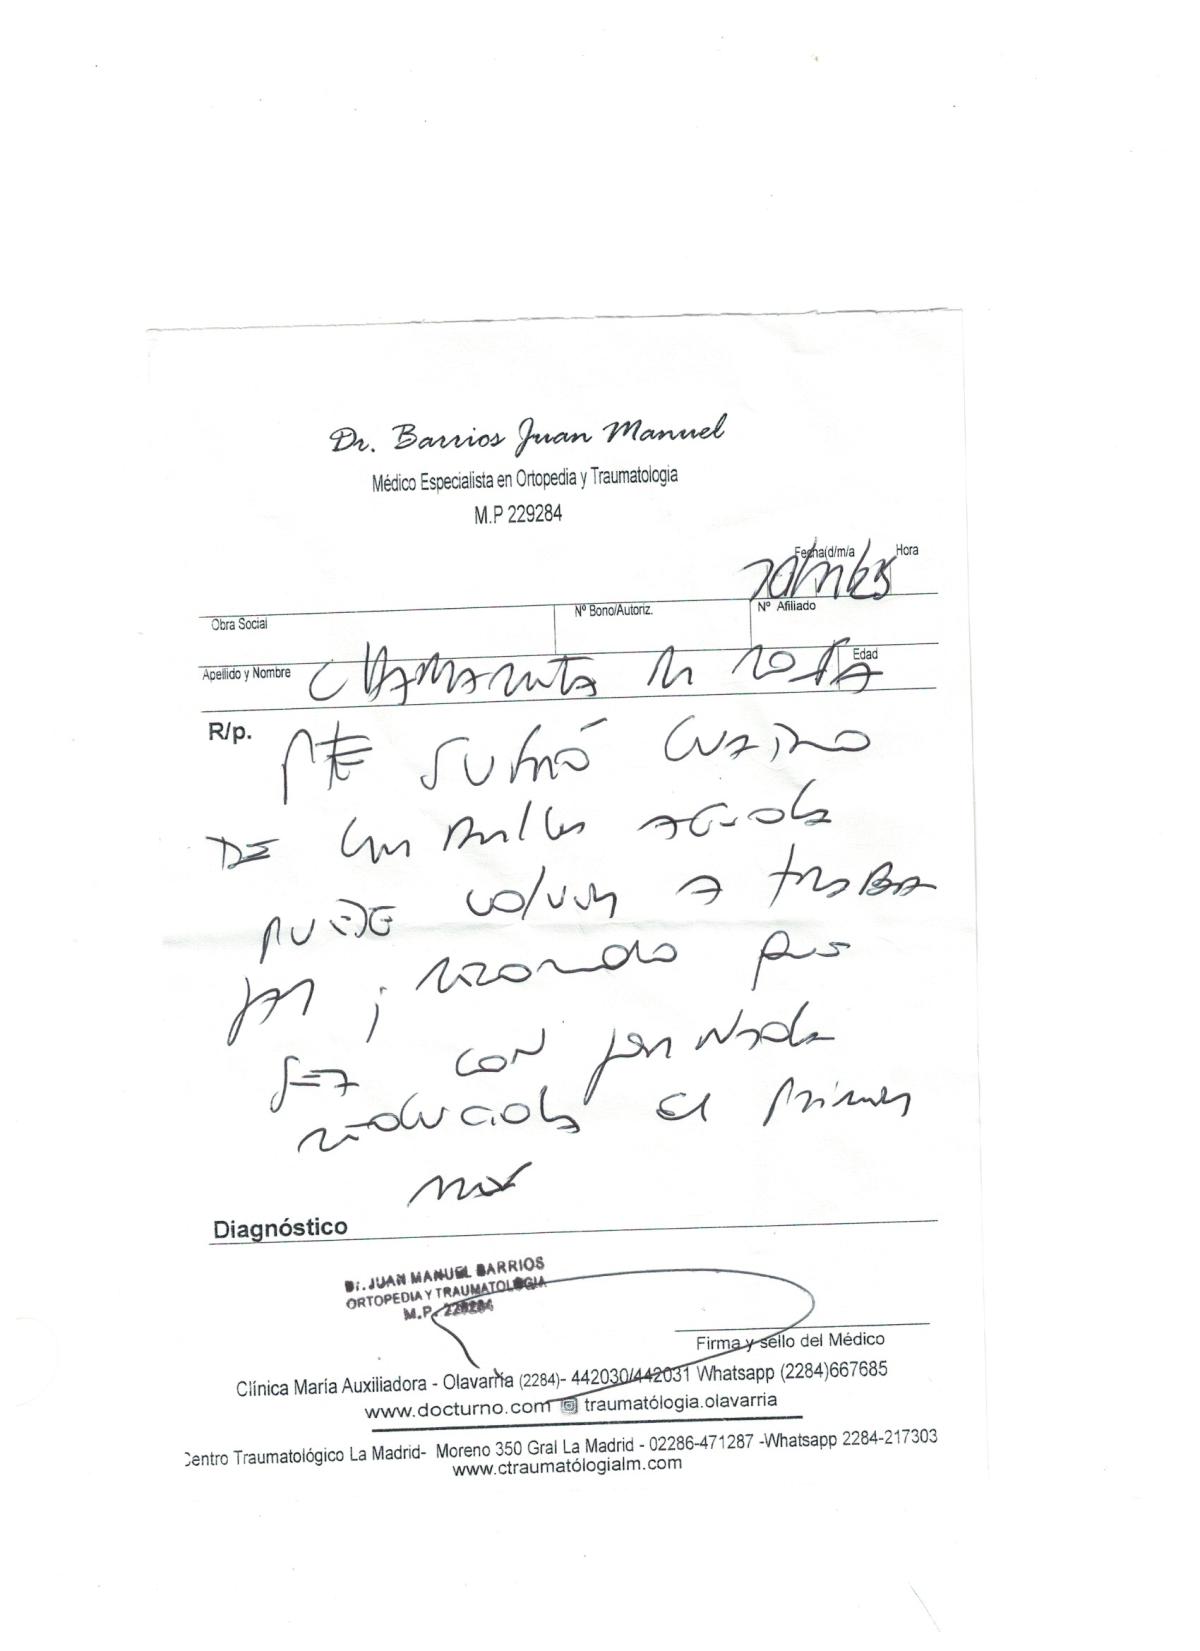 Dr. Barrios Juan Manuel
Médico Especialista en Ortopedia y Traumatologia
M.P 229284
Fecha(d/m/a Hora
Obra Social Nº Bono/Autoriz. Nº Afiliado
Apellido y Nombre Edad
R/p. PTE SUFRIÓ CUADRO
DE lumbalgia aguda
PUEDE volver A TRABA
JAR ; recomiendo que
SEA CON jornada
reducida el primer
mes
Diagnóstico
Dr. JUAN MANUEL BARRIOS
ORTOPEDIA Y TRAUMATOLOGIA
M.P. 229284
Firma y sello del Médico
Clínica María Auxiliadora - Olavarría (2284)- 442030/442031 Whatsapp (2284)667685
www.docturno.com traumatólogia.olavarria
Centro Traumatológico La Madrid- Moreno 350 Gral La Madrid - 02286-471287 -Whatsapp 2284-217303
www.ctraumatólogialm.com